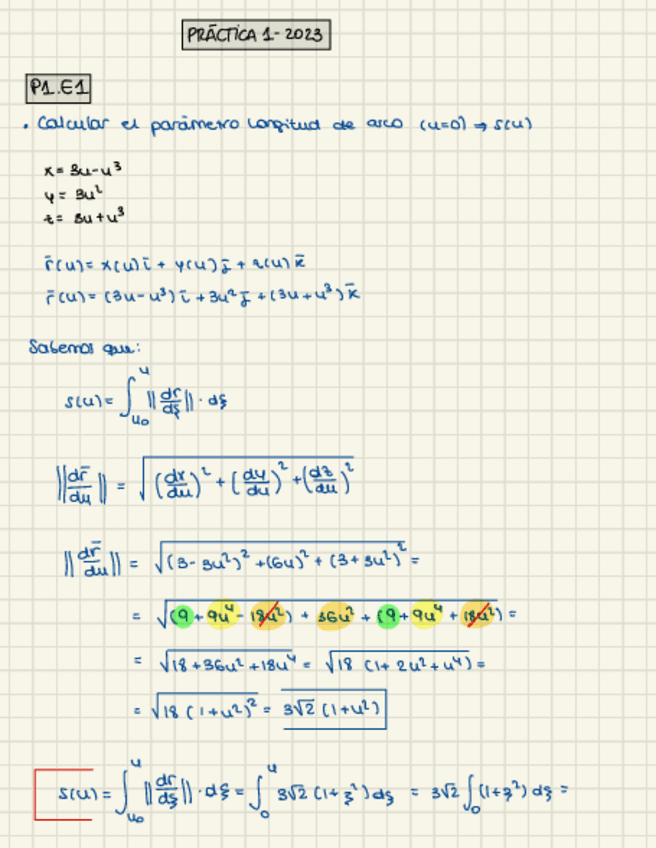 PRÁCTICA 1 - 2023
P1.E1
• Calcular el parámetro longitud de arco (u=0) ⇒ s(u)
x = 3u-u³
y = 3u²
z = 3u+u³
r̄(u) = x(u) ī + y(u) j̄ + z(u) k̄
r̄(u) = (3u-u³) ī + 3u² j̄ + (3u+u³) k̄
Sabemos que:
s(u) = ∫_{u₀}^{u} ||dr̄/dξ|| · dξ
||dr̄/du|| = √((dx/du)² + (dy/du)² + (dz/du)²)
||dr̄/du|| = √((3-3u²)² + (6u)² + (3+3u²)²) =
= √((9+9u⁴-18u²) + 36u² + (9+9u⁴+18u²)) =
= √(18+36u²+18u⁴) = √(18 (1+2u²+u⁴)) =
= √(18 (1+u²)²) = 3√2 (1+u²)
s(u) = ∫_{u₀}^{u} ||dr̄/dξ|| · dξ = ∫_{0}^{u} 3√2 (1+ξ²) dξ = 3√2 ∫_{0} (1+ξ²) dξ =